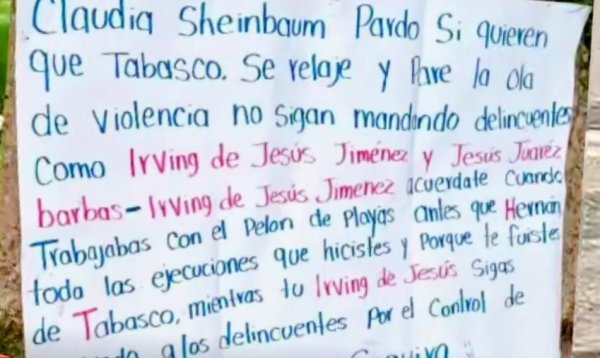 Claudia Sheinbaum Pardo Si quieren
que Tabasco. Se relaje y Pare la ola
de violencia no sigan mandando delincuentes
Como Irving de Jesús Jiménez y Jesús Juaréz
barbas-Irving de Jesús Jimenez acuerdate cuando
Trabajabas con el Pelon de Playas antes que Hernán
toda las ejecuciones que hicistes y Porque te fuistes
de Tabasco, mientras tu Irving de Jesús Sigas
a los delincuentes Por el Control de